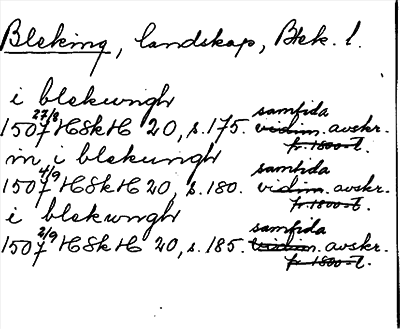 Bleking, landskap, Blek. l.
i blekungh
1507 27/8 HSkH 20, s. 175. samtida vidim. avskr. fr. 1800-t.
in i blekungh
1507 4/9 HSkH 20, s. 180. samtida vidim. avskr. fr. 1800-t.
i blekungh
1507 2/9 HSkH 20, s. 185. samtida vidim. avskr. fr. 1800-t.